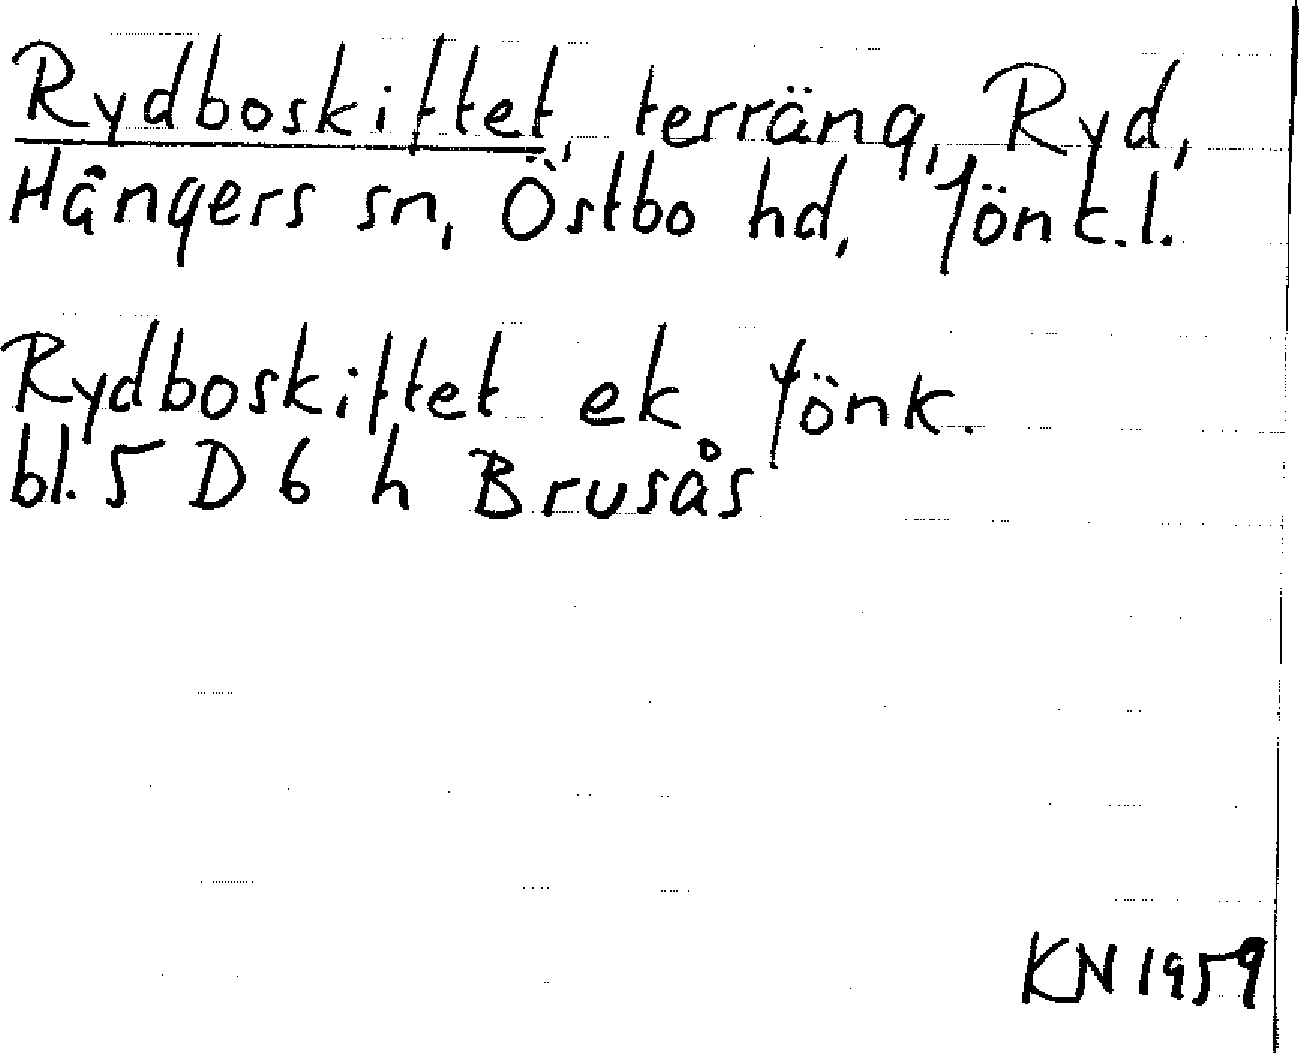 Rydboskiftet, terräng, Ryd,
Hångers sn, Östbo hd, Jönk.l.
Rydboskiftet ek Jönk.
bl. 5 D 6 h Brusås
KN 1959